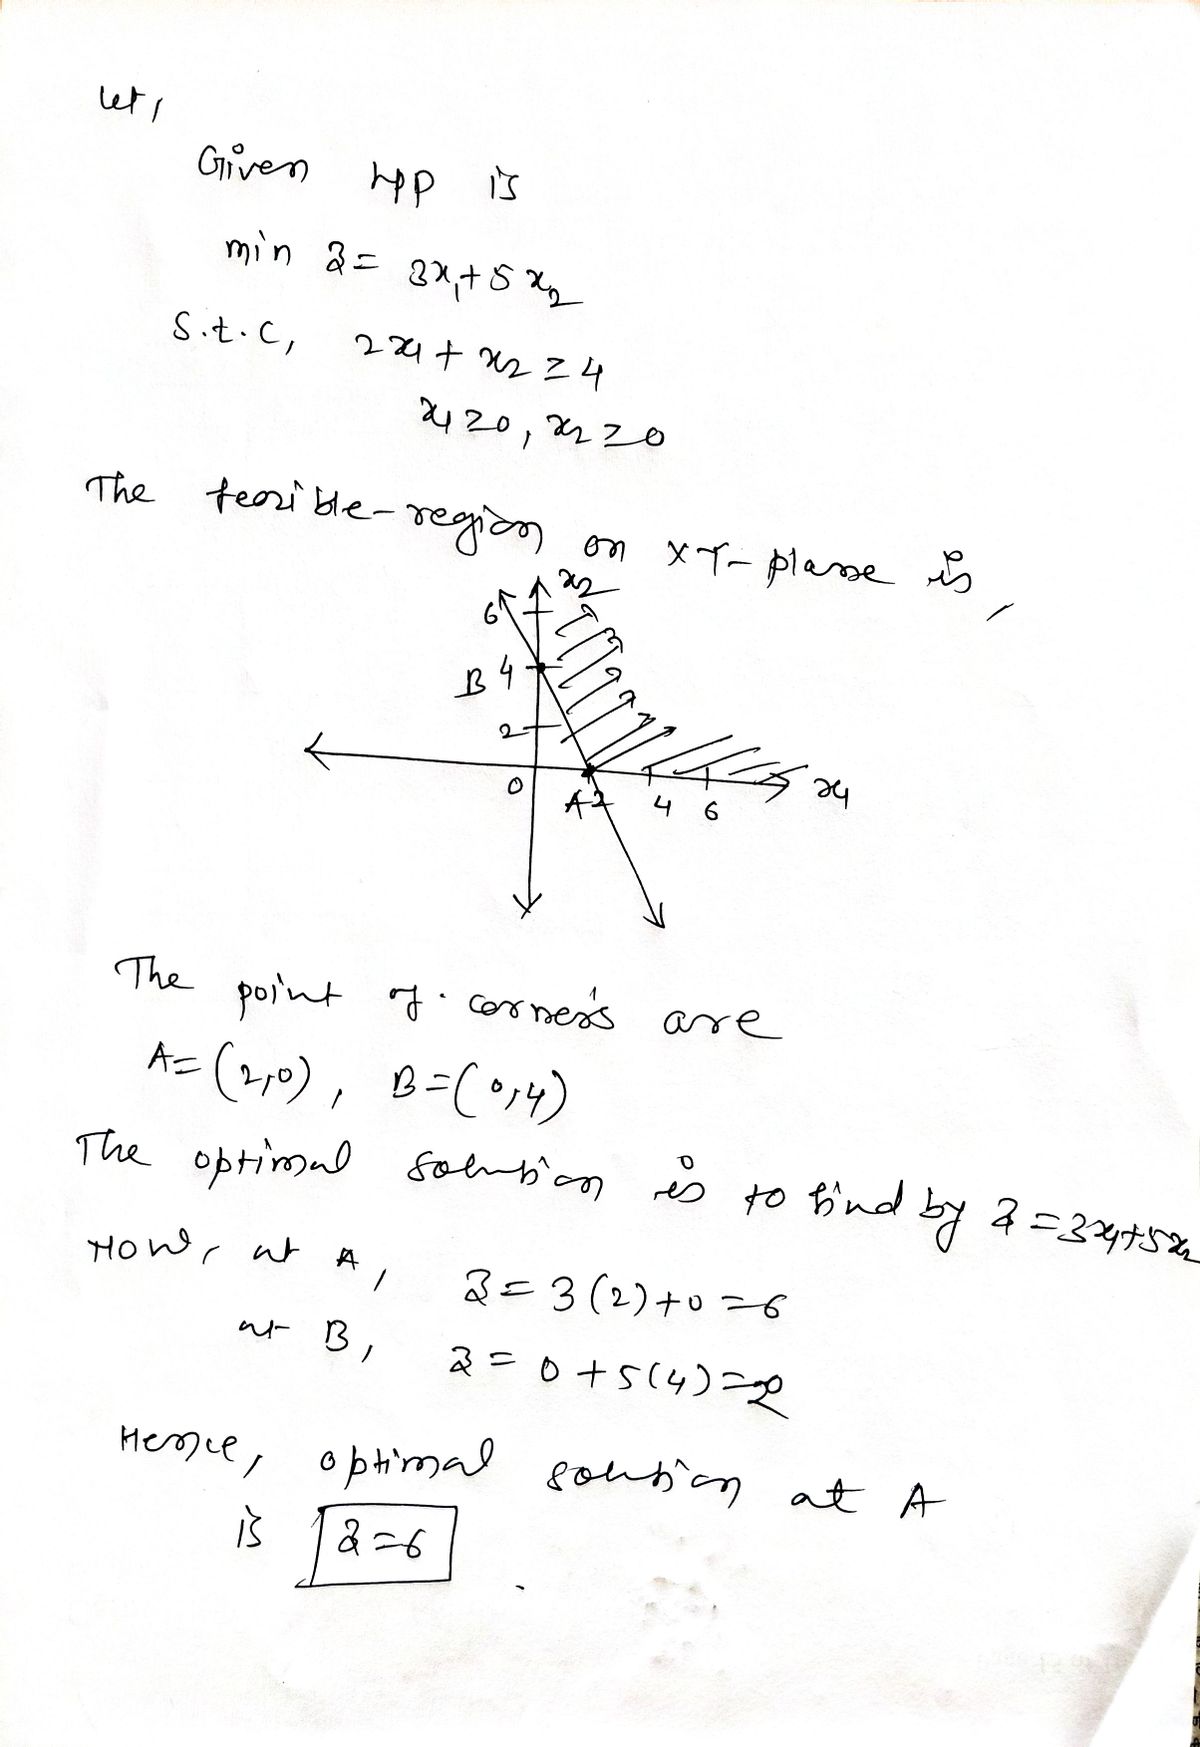 Let,
Given LPP is
min Z = 3x₁ + 5x₂
S.t.C, 2x₁ + x₂ ≥ 4
x₁ ≥ 0, x₂ ≥ 0
The feasible-region on XY-plane is,
x₂
6
B 4
2
0 A 2 4 6 x₁
The point of corners are
A = (2,0), B = (0,4)
The optimal solution is to find by Z = 3x₁ + 5x₂
Now, at A, Z = 3(2) + 0 = 6
at B, Z = 0 + 5(4) =
Hence, optimal solution at A
is Z = 6